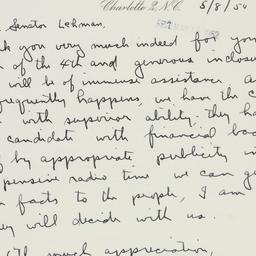 Charlotte 2, N.C. 5/8/50
Senator Lehman,
k you very much indeed for you
n of the 4th and generous inclosu
will be of immense assistance a
requently happens, we have the c
with superior ability. they ha
candidate with financial bac
by appropriate publicity in
pensive radio time we can ge
facts to the people, I am
ey will decide with us.
much appreciation,